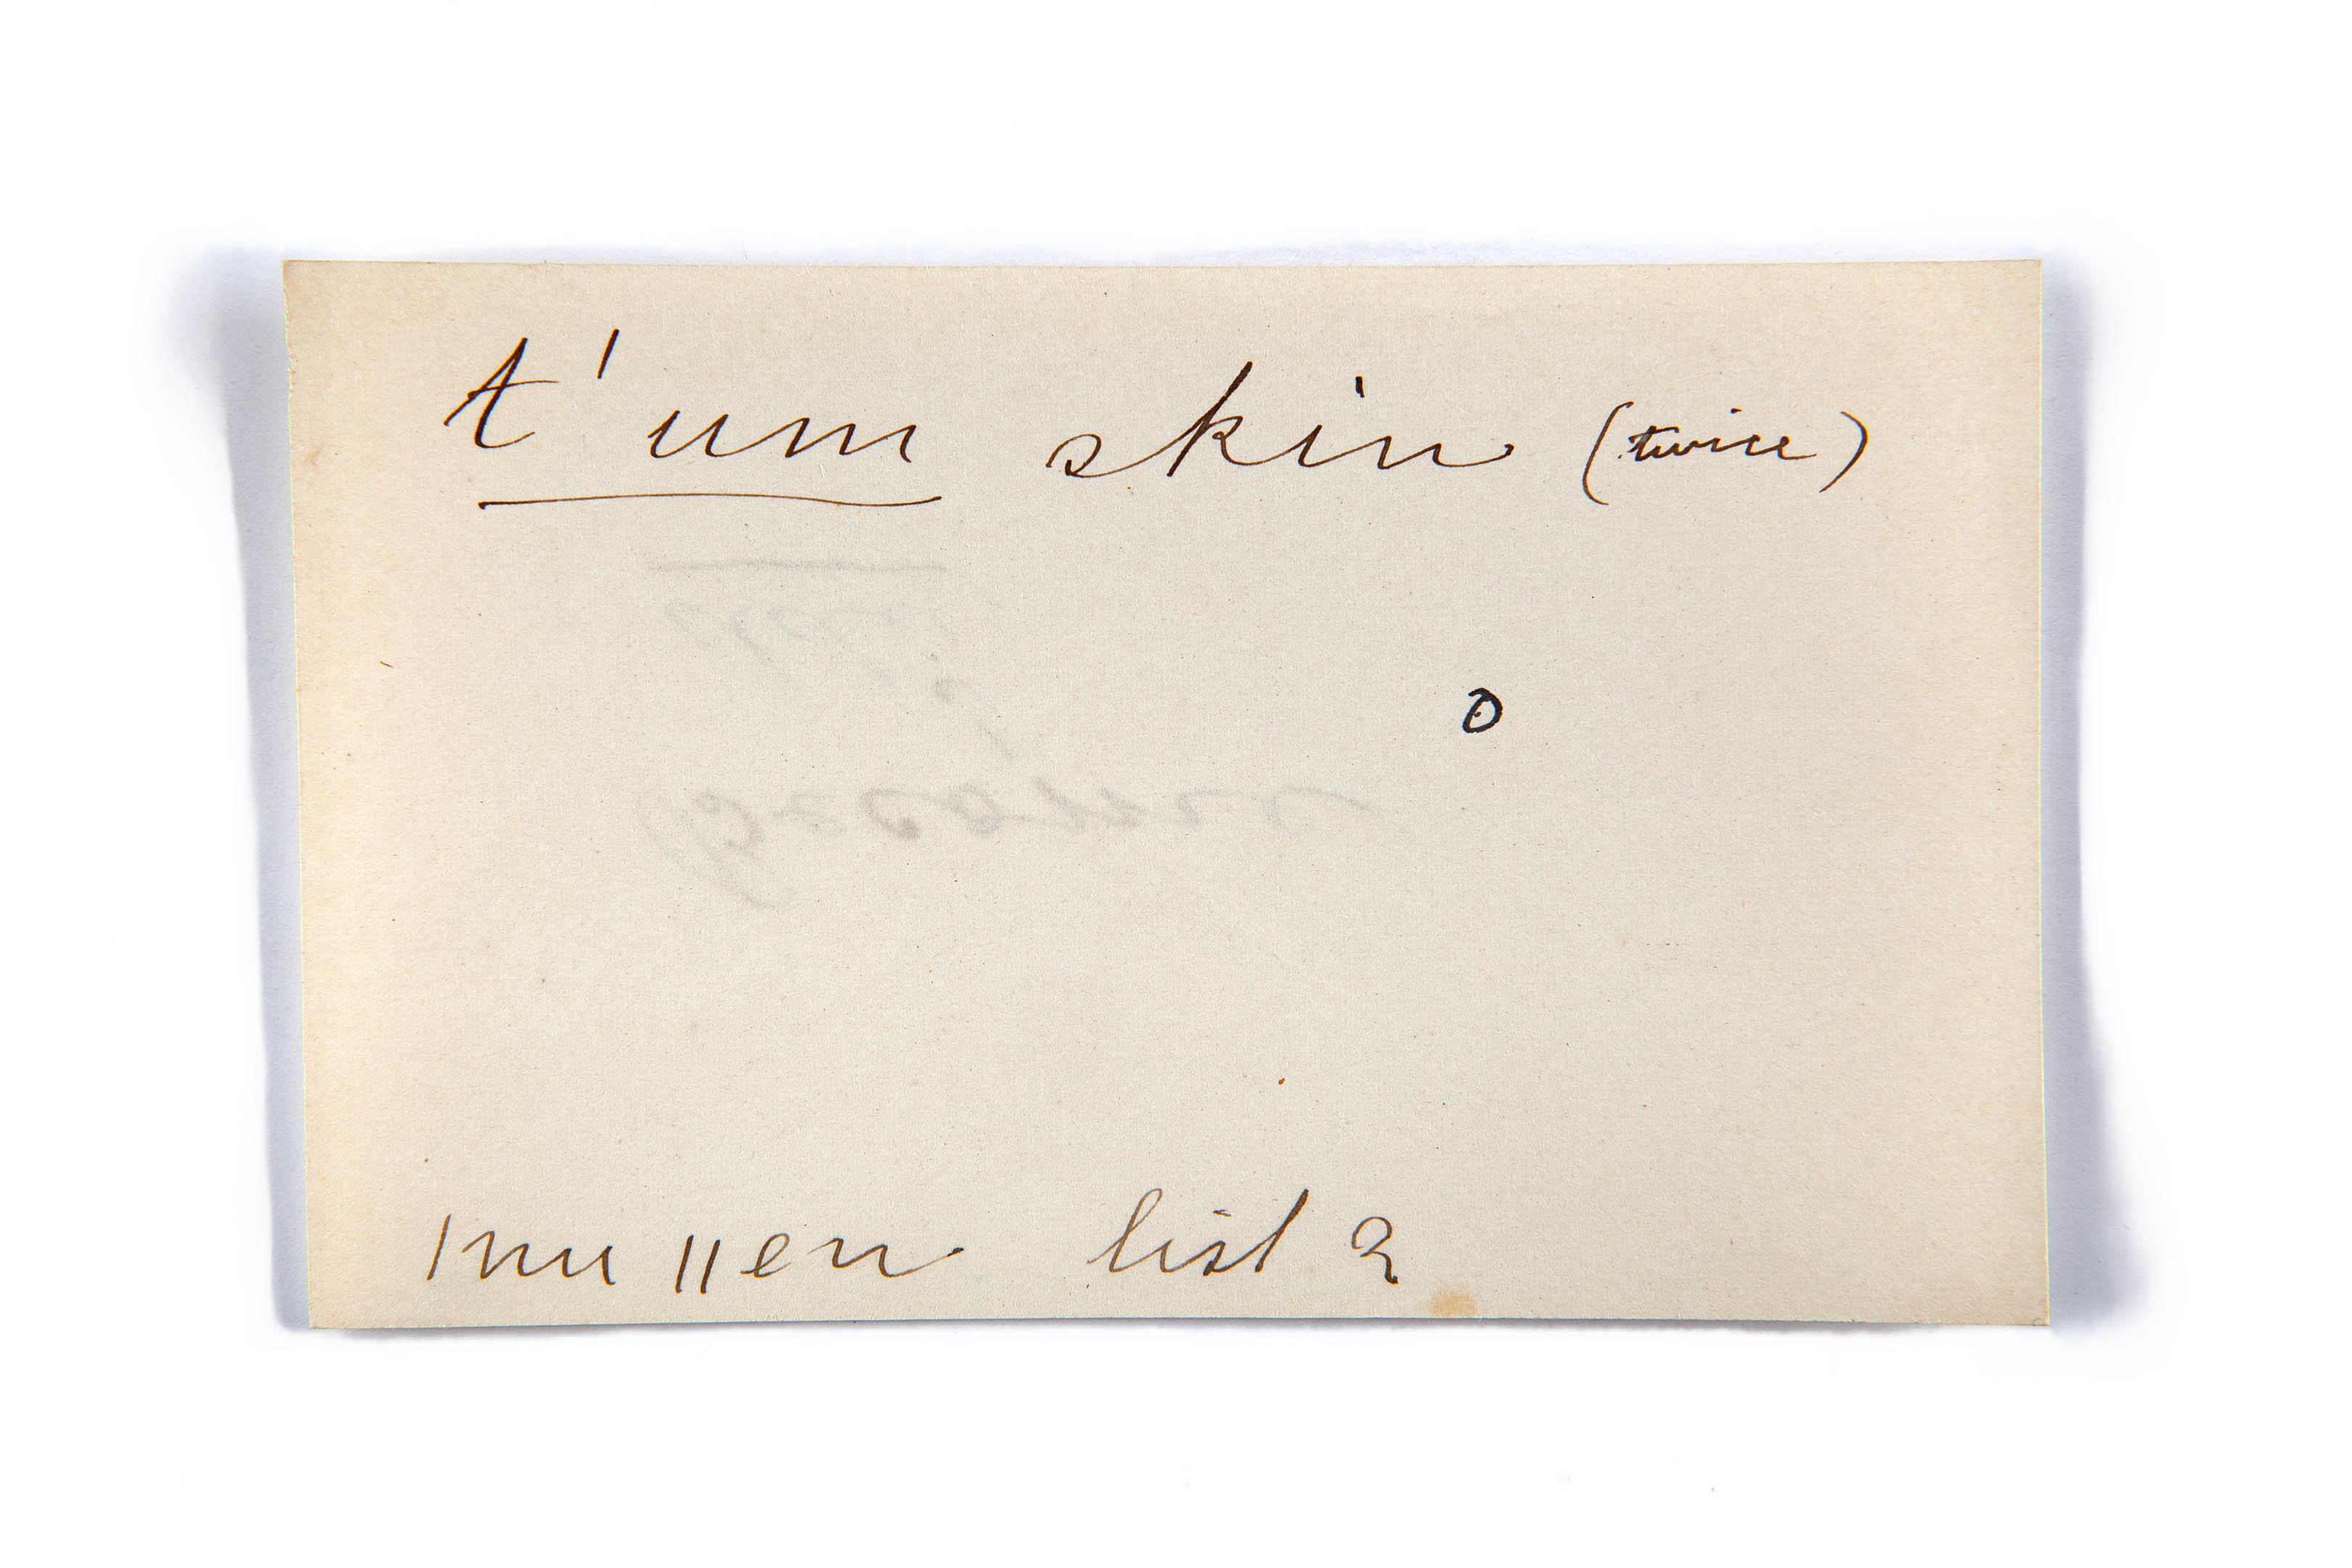 t'um skin (twice)
o
|nu ||en list 2